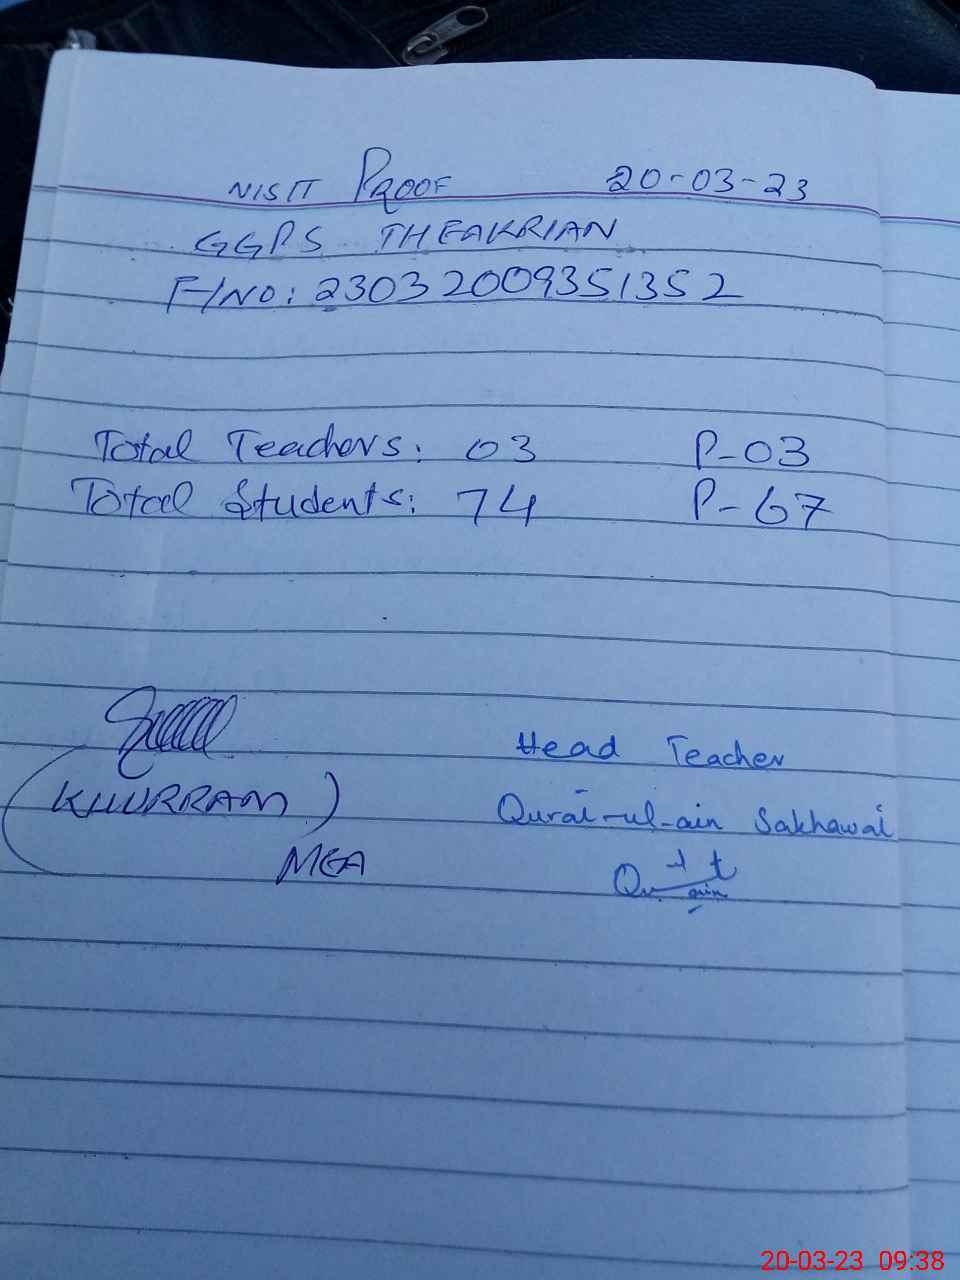 VISIT PROOF 20-03-23
GGPS THEAKRIAN
F/NO: 23032009351352
Total Teachers: 03 P-03
Total Students: 74 P-67
Head Teacher
(KHURRAM) Qurat-ul-ain Sakhawat
MEA
20-03-23 09:38